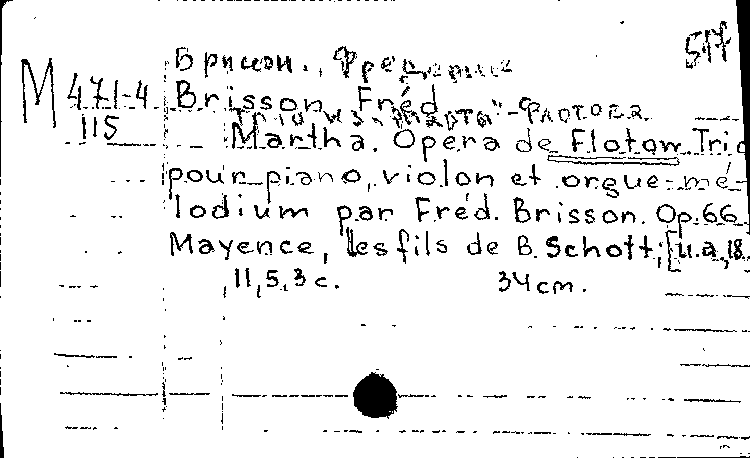 517
Бриссон, Фредерик
М 471-4 Brisson, Fréd.
115 Трио из „Марта"-Флотова
Martha. Opera de Flotow. Trio
pour piano, violon et orgue-mé-
lodium par Fréd. Brisson. Op. 66.
Mayence, les fils de B. Schott; [u.a., 18
11, 5, 3 c. 34 cm.